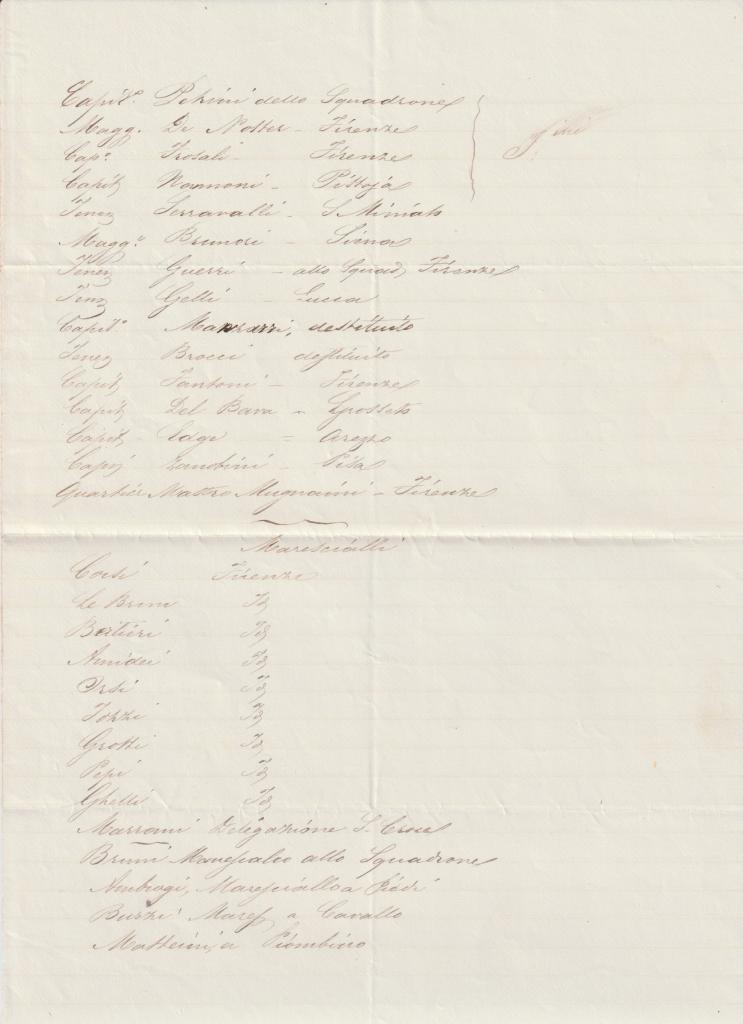 Capit.º Petrini dello Squadrone
Magg. De Notter - Firenze
Cap.º Frosali - Firenze
Capit Nannoni - Pistoja
Tenen Serravalli - S Miniato
Magg.e Brunori - Siena
Tenen Guerri - allo Squad, Firenze
Tenen Gelli - Lucca
Capit.º destituito
Tenen Brocci destituito
Capit Fantoni - Firenze
Capit Del Bava - Grosseto
Capit - = Arezzo
Capi Zandrini - Pisa
Quartier Mastro Mugnaini - Firenze
Marescialli
Corsi Firenze
Le Brun Id
Bertieri Id
Amidei Id
Orsi Id
Tozzi Id
Grotti Id
Pepi Id
Ghelli Id
Marrani Delegazione S. Croce
Bruni Maresciallo allo Squadrone
Ambrogi, Maresciallo a Piedi
Buzzi Maresc a Cavallo
Matteini, a Piombino